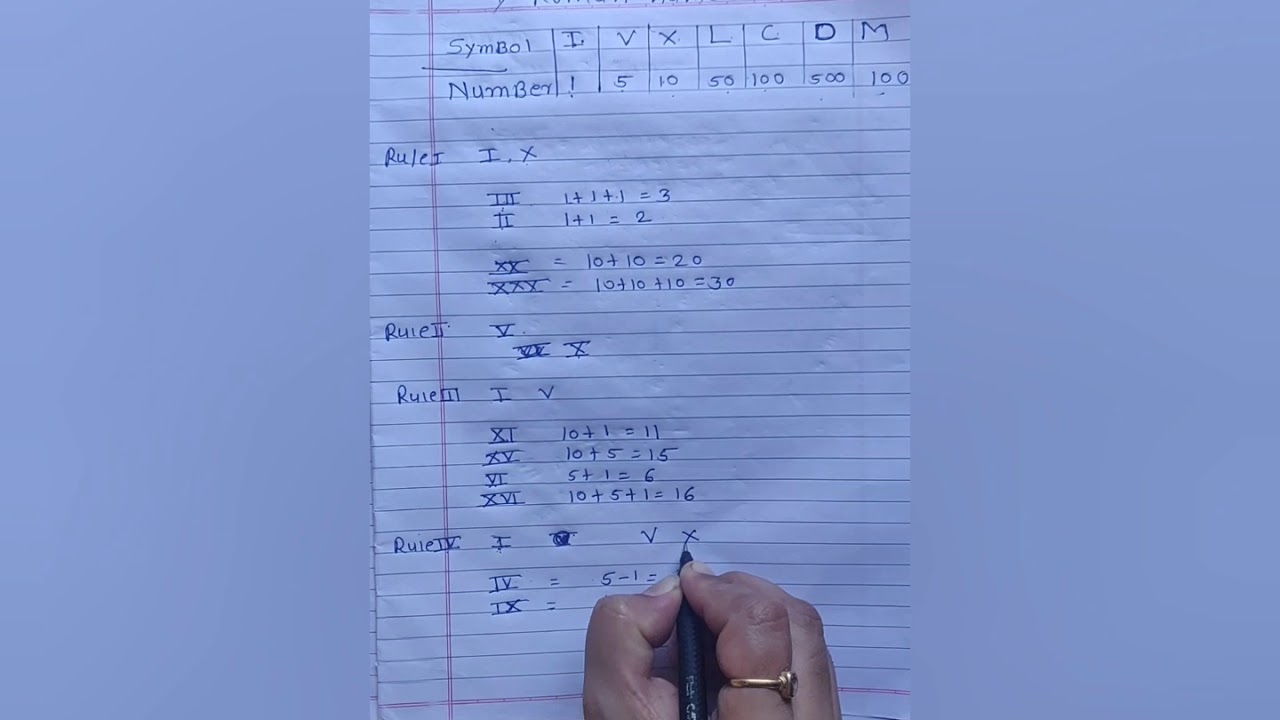 Symbol I V X L C D M
Number 1 5 10 50 100 500 100
Rule I I, X
III 1+1+1 = 3
II 1+1 = 2
XX = 10+10 = 20
XXX = 10+10+10 = 30
Rule II V.
X
Rule III I V
XI 10+1 = 11
XV 10+5 = 15
VI 5+1 = 6
XVI 10+5+1 = 16
Rule IV I V X
IV = 5-1 =
IX =